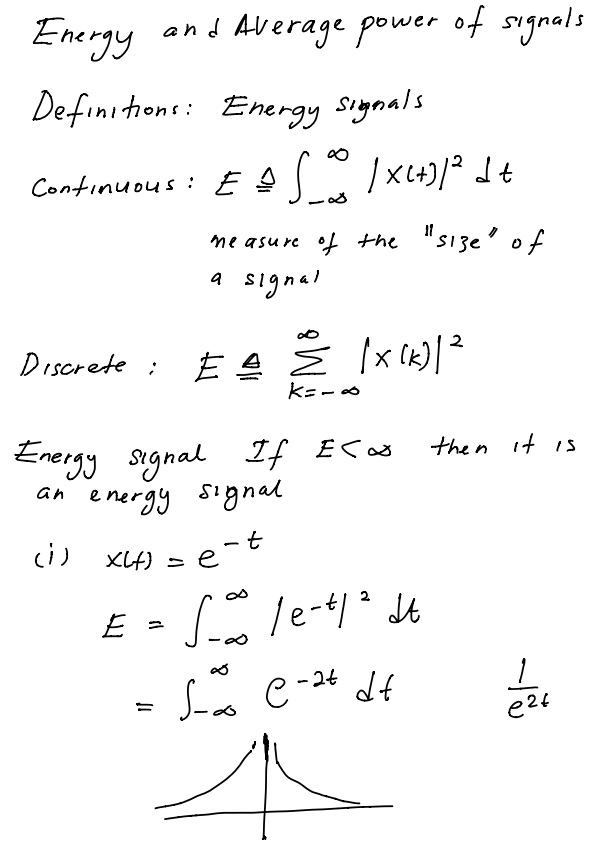 Energy and Average power of signals
Definitions: Energy signals
Continuous: E ≜ ∫_{-∞}^{∞} |x(t)|² dt
measure of the "size" of
a signal
Discrete: E ≜ ∑_{k=-∞}^{∞} |x(k)|²
Energy signal If E<∞ then it is
an energy signal
(i) x(t) = e^{-t}
E = ∫_{-∞}^{∞} |e^{-t}|² dt
= ∫_{-∞}^{∞} e^{-2t} dt 1/e^{2t}